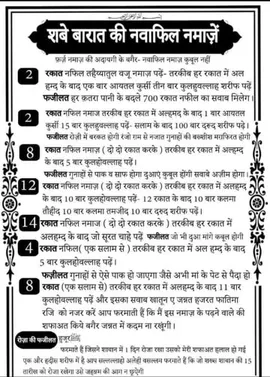 शबे बारात की नवाफिल नमाज़ें
फ़र्ज़ नमाज़ की अदायगी के बगैर- नवाफिल नमाज़ कुबूल नहीं
2 रकात नफिल तहैय्यातुल वजू नमाज़ पढ़ें- तरकीब हर रकात में अल
हम्द के बाद एक बार आयतल कुर्सी तीन बार कुलहुवल्लाह शरीफ पढ़ें।
फजीलत हर क़तरा पानी के बदले 700 रकात नफील का सवाब मिलेगा।
2 रकात नफील नमाज़ तरकीब हर रकात में अल्हम्द के बाद 1 बार आयतल
कुर्सी 15 बार कुलहुवल्लाह पढ़ें- सलाम के बाद 100 बार दरूद शरीफ पढ़ें।
फजीलत रोज़ी में बरकत होगी रंजो गम से नजात गुनाहों की बक्शीश मगफिरत होगी
8 रकात नफिल नमाज़ ( दो दो रकात करके ) तरकीब हर रकात में अल्हम्द
के बाद 5 बार कुलहोवल्लाह पढ़ें।
फजीलत गुनाहों से पाक व साफ होगा दुआएं कुबूल होंगी सवाबे अज़ीम होगा।
12 रकात नफिल नमाज़ ( दो दो रकात करके ) तरकीब हर रकात में अलहम्द
के बाद 10 बार कुलहोवल्लाह पढ़ें- 12 रकात के बाद 10 बार कलमा
तौहीद 10 बार कलमा तमजीद 10 बार दरूद शरीफ पढ़ें।
14 रकात नफिल नमाज ( दो दो रकात करके ) तरकीब हर रकात में
अलहम्द के बाद जो सूरत चाहे पढ़ें फजीलत जो भी दुआ मांगे कबूल होगी
4 रकात नफिल( एक सलाम से ) तरकीब हर रकात में अल हम्द के बाद
5 बार कुलहोवल्लाह पढ़ें।
फज़ीलत गुनाहों से ऐसे पाक हो जाएगा जैसे अभी मां के पेट से पैदा हो
8 रकात (एक सलाम से) तरकीब हर रकात में अलहम्द के बाद 11 बार
कुलहोवल्लाह पढ़ें और इसका सवाब खातून ए जन्नत हजरत फातिमा
रजि को नजर करें आप फरमाती हैं कि मैं इस नमाज़ के पढ़ने वाले की
शफाअत किये बगैर जन्नत में कदम ना रखुंगी।
रोज़ा की फजीलत हुजूर ﷺ
फरमाते हैं जिसने शाबान में 1 दिन रोजा रखा उसको मेरी शफाअत हलाल हो गई
एक और हदीस शरीफ में है आप सल्लल्लाहो अलैहे वसल्लम फरमाते हैं कि जो शख्स शाबान की 15
तारीख को रोजा रखेगा उसे जहन्नम की आग न छुऐगी